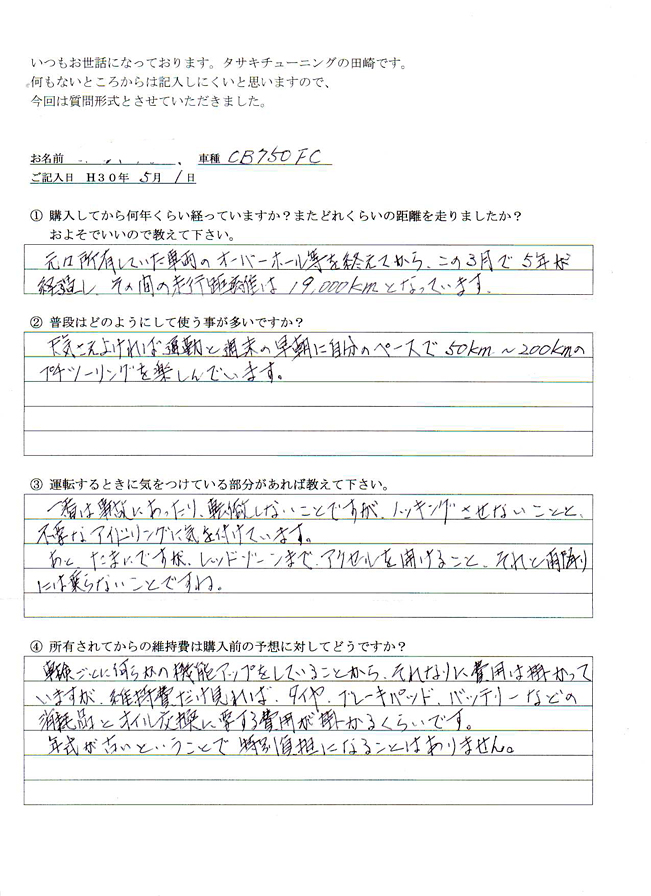 いつもお世話になっております。タサキチューニングの田崎です。
何もないところからは記入しにくいと思いますので、
今回は質問形式とさせていただきました。
お名前 、 車種 CB750FC
ご記入日 H30年 5月 1日
① 購入してから何年くらい経っていますか？またどれくらいの距離を走りましたか？
およそでいいので教えて下さい。
元々所有していた車両のオーバーホール等を終えてから、この3月で5年が
経過し、その間の走行距離は19,000kmとなっています。
② 普段はどのようにして使う事が多いですか？
天気さえよければ通勤と週末の早朝に自分のペースで50km～200kmの
プチツーリングを楽しんでいます。
③ 運転するときに気をつけている部分があれば教えて下さい。
一番は事故にあったり、転倒しないことですが、ノッキングさせないことと、
不要なアイドリングに気を付けています。
あと、たまにですが、レッドゾーンまでアクセルを開けること、それと雨降り
には乗らないことですね。
④ 所有されてからの維持費は購入前の予想に対してどうですか？
車検ごとに何らかの機能アップをしていることから、それなりに費用は掛かって
いますが、維持費だけ見れば、タイヤ、ブレーキパッド、バッテリーなどの
消耗品とオイル交換に要する費用が掛かるくらいです。
年式が古いということで特別負担になることはありません。